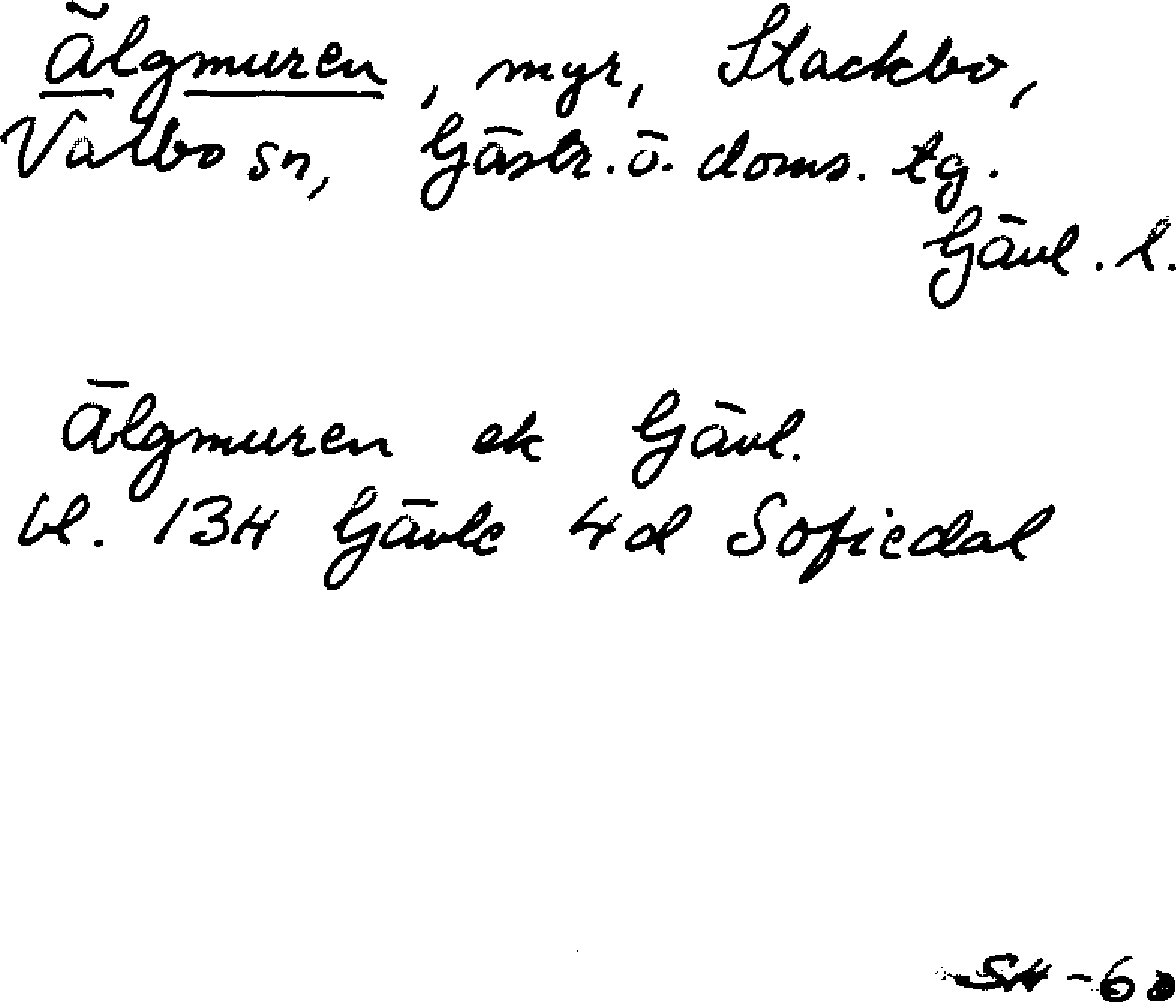 Älgmuren, myr, Stackbo,
Valbo sn, Gästr. ö. doms. tg.
Gävl. l.
Älgmuren ek Gävl.
bl. 13H Gävle 4d Sofiedal